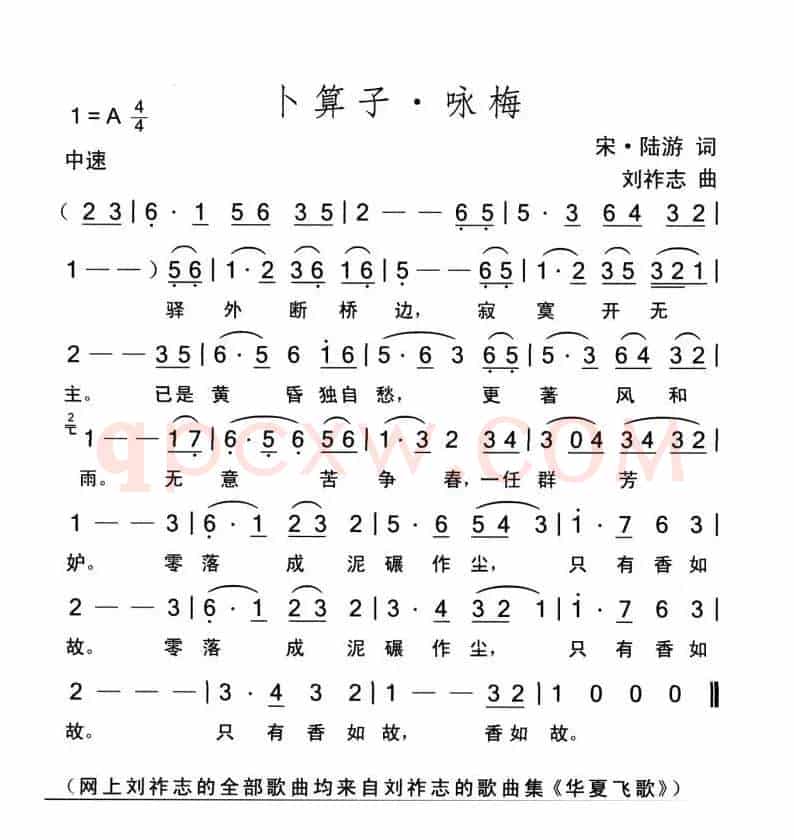 卜算子·咏梅
1=A 4/4
宋·陆游 词
中速
刘祚志 曲
(23|6·1 56 35|2 — — 65|5·3 64 32|
1 — —)56|1·2 36 16|5 — — 65|1·2 35 321|
驿外断桥边，寂寞开无
2 — — 35|6·5 6 16|5·6 3 65|5·3 64 32|
主。已是黄昏独自愁，更著风和
2
1 — — 17|6·5 6 56|1·3 2 34|3 04 34 32|
雨。无意苦争春，一任群芳
2 — — 3|6·1 23 2|5·6 54 3|1·7 6 3|
妒。零落成泥碾作尘，只有香如
2 — — 3|6·1 23 2|5·4 32 1|1·7 6 3|
故。零落成泥碾作尘，只有香如
2 — — —|3·4 3 2|1 — — 32|1 0 0 0‖
故。只有香如故，香如故。
(网上刘祚志的全部歌曲均来自刘祚志的歌曲集《华夏飞歌》)
qpcxw.COM